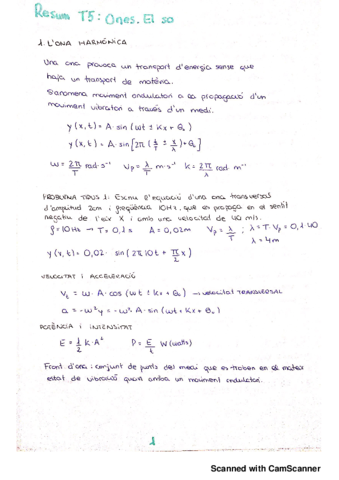 Resum T5: Ones. El so
1. L'ONA HARMÒNICA
Una ona provoca un transport d'energia sense que
hagi un transport de matèria.
S'anomena moviment ondulatori a la propagació d'un
moviment vibratori a través d'un medi.
y (x, t) = A · sin (ωt ± Kx + θ₀)
y (x, t) = A · sin [2π (t/T ± x/λ) + θ₀]
ω = 2π/T rad · s⁻¹ Vp = λ/T m · s⁻¹ k = 2π/λ rad · m⁻¹
PROBLEMA TIPUS 1: Escriu l'equació d'una ona transversal
d'amplitud 2cm i freqüència 10Hz, que es propaga en el sentit
negatiu de l'eix X i amb una velocitat de 40 m/s.
f = 10Hz → T = 0,1 s A = 0,02m Vp = λ/T ; λ = T · Vp = 0,1 · 40
λ = 4m
y (x, t) = 0,02 · sin (2π10t + π/2 x)
VELOCITAT I ACCELERACIÓ
Vt = ω · A · cos (ωt ± kx + θ₀) → velocitat TRANSVERSAL
a = -ω²y = -ω² · A · sin (ωt ± Kx + θ₀)
POTÈNCIA I INTENSITAT
E = 1/2 K · A² P = E/t W (watts)
Front d'ona: conjunt de punts del medi que es troben en el mateix
estat de vibració quan arriba un moviment ondulatori.
1
Scanned with CamScanner